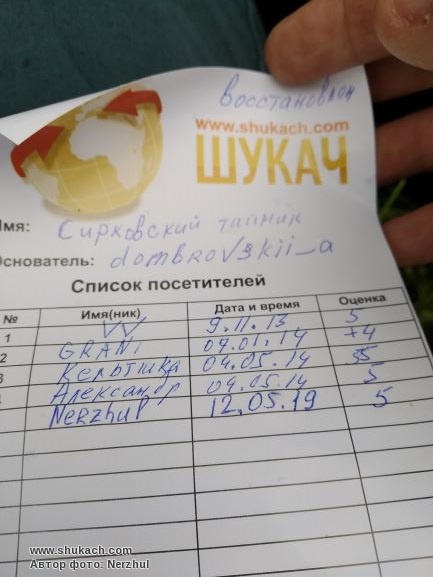 Восстановлен
www.shukach.com
ШУКАЧ
Имя: Сирковский тайник
Основатель: dombrovskii_a
Список посетителей
№ Имя(ник) Дата и время Оценка
1 VV 9.11.13 5
2 GRANI 04.01.14 +4
3 Кельтика 04.05.14 55
Александр 04.05.14 5
Nerzhul 12.05.19 5
www.shukach.com
Автор фото: Nerzhul